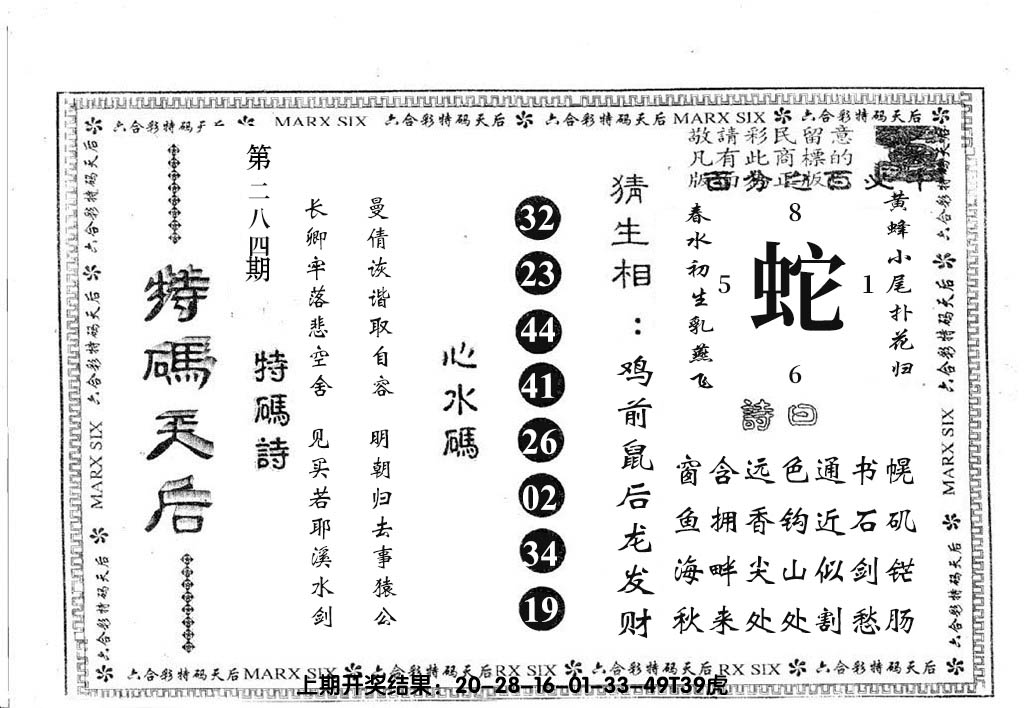 六合彩特码天后 MARX SIX 六合彩特码天后 六合彩特码天后 MARX SIX 六合彩特码天后
敬請彩民留意
凡有此商標的
版面为正版
黄蜂小尾扑花归
春水初生乳燕飞
8
5 蛇 1
6
詩曰
窗含远色通书幌
鱼拥香钩近石矶
海畔尖山似剑铓
秋来处处割愁肠
猜生相：鸡前鼠后龙发财
32
23
44
41
26
02
34
19
心水碼
曼倩诙谐取自容 明朝归去事猿公
长卿牢落悲空舍 见买若耶溪水剑
特碼詩
第二八四期
特碼天后
六合彩特码天后 六合彩特码天后 MARX SIX 六合彩特码天后
六合彩特码天后 六合彩特码天后 MARX SIX 六合彩特码天后
六合彩特码天后 MARX SIX 六合彩特码天后 RX SIX 六合彩特码天后 RX SIX 六合彩特码天后
上期开奖结果：20-28-16-01-33-49T39虎